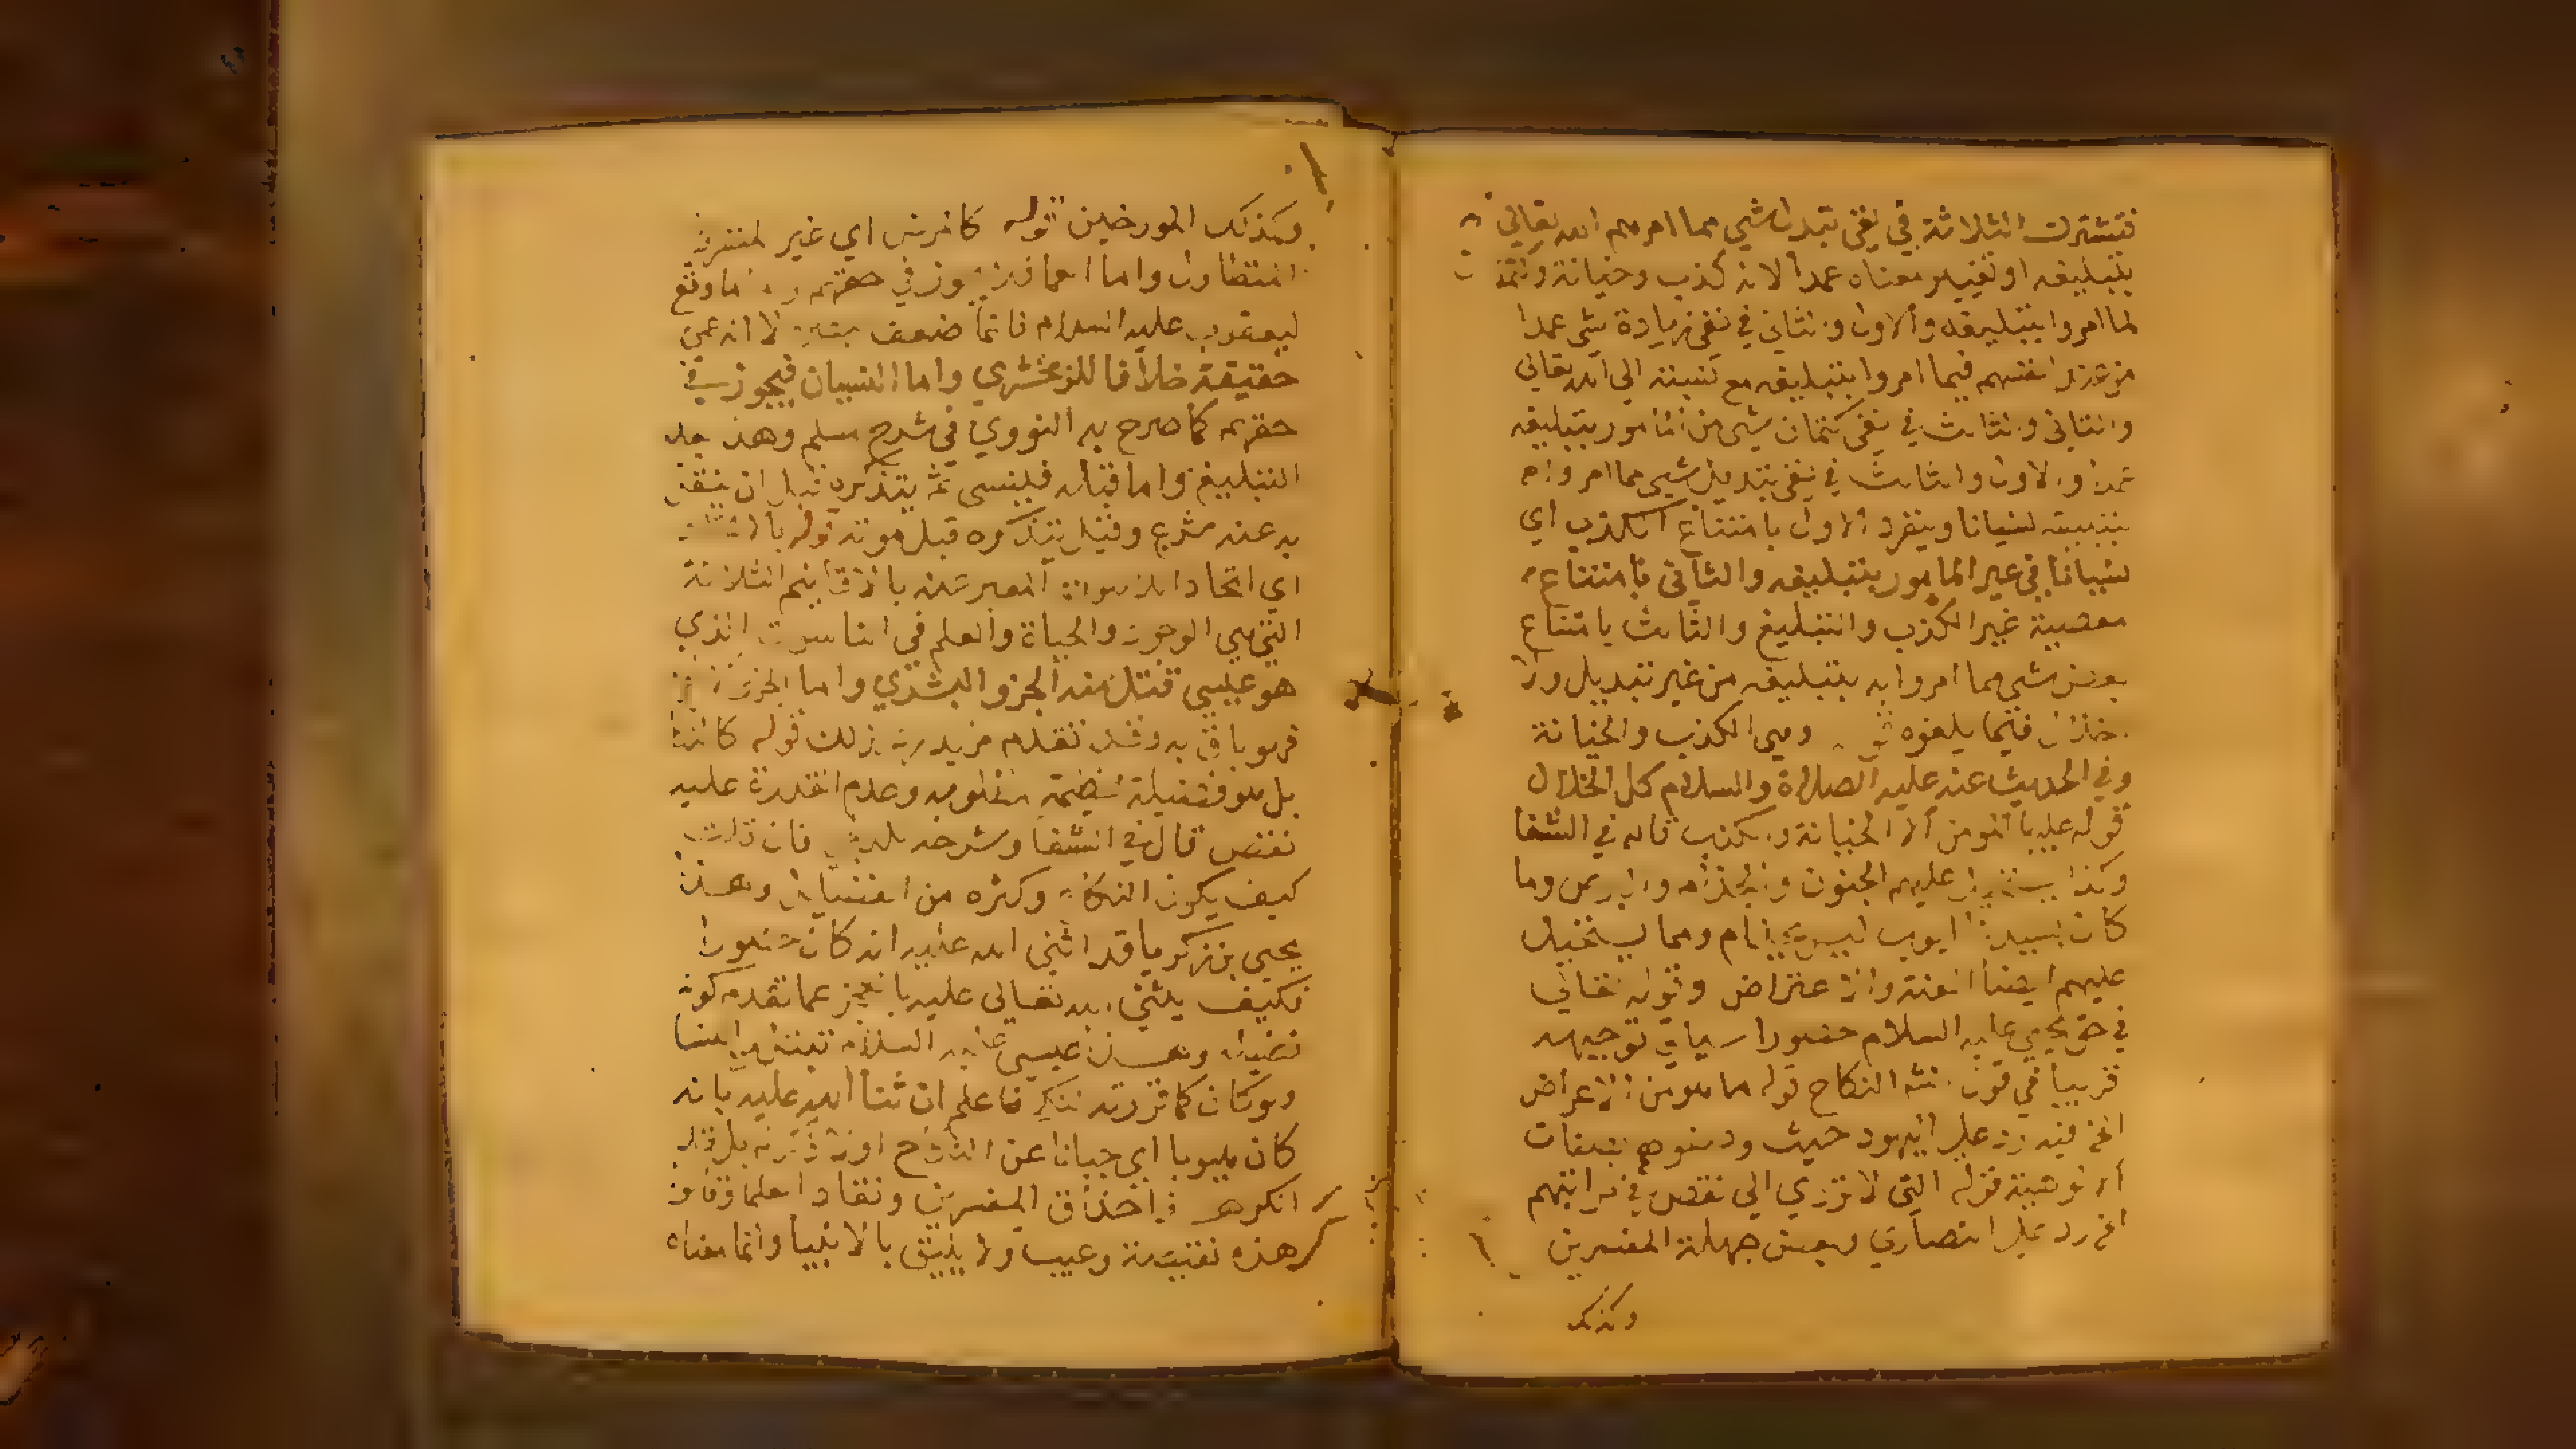 فتشترك الثلاثة في نفي تبديل شي مما امرهم الله تعالى
بتبليغه او تغيير معناه عمدا لانه كذب وخيانة وكتم
لما امروا بتبليغه والاول والثاني في نفي زيادة شي عمدا
من عند انفسهم فيما امروا بتبليغه مع نسبته الى الله تعالى
والثاني والثالث في نفي كتمان شي من المامور بتبليغه
عمدا والاول والثالث في نفي تبديل شي مما امروا
بتبليغه نسيانا وينفرد الاول بامتناع الكذب اي
نسيانا في غير المامور بتبليغه والثاني بامتناع
معصية غير الكذب والتبليغ والثالث بامتناع
بعض شي مما امروا به بتبليغه من غير تبديل ولا
فيما بلغوه وهي الكذب والخيانة
وفي الحديث عنه عليه الصلاة والسلام كل الخلال
المومن الا الخيانة والكذب قاله في الشفا
وكذا يستحيل عليهم الجنون والجذام والبرص وما
كان بسيدنا ايوب ليس بجذام ومما يستحيل
عليهم ايضا العنة والاعتراض وقوله تعالى
في حق يحيى عليه السلام حصورا سياتي توجيهه
قريبا في قوله النكاح قوله مما هو من الاعراض
الخ فيه رد على اليهود حيث وصفوهم بصفات
الالوهية قوله التي لا تودي الى نقص في مراتبهم
الخ رد على النصاري وبعض جهلة المفسرين
وكذلك
وكذلك المورخين قوله كالمرض اي غير المنفر
واما العما فلا يجوز في حقهم وما وقع
ليعقوب عليه السلام فانما ضعف بصره لا انه عمي
حقيقة خلافا للزمخشري واما النسيان فيجوز في
حقهم كما صرح به النووي في شرح مسلم وهذا بعد
التبليغ واما قبله فلينسى ثم يتذكره قبل ان
به عنه شرع وقيل يتذكره قبل موته قوله
اي اتحاد المعبر عنه بالاقانيم الثلاثة
التي هي الوجود والحياة والعلم في الناسوت الذي
هو عيسى فقتل منه الجزو البشري واما الجزو
فهو باق به وقد تقدم مزيد لذلك قوله كالنكاح
بل هو فضيلة عظيمة مطلوبه وعدم القدرة عليه
نقص قال في الشفا وشرحه فان قلت
كيف يكون النكاح وكثره من الفضايل وهذا
يحيى بن زكريا قد اثنى الله عليه انه كان حصورا
فكيف يثني الله تعالى عليه بالعجز عما تقدم كونه
فضيلة وهذا عيسى عليه السلام تبتل من النسا
ولو كان كما قررته لنكح فاعلم ان ثنا الله عليه بانه
كان هيوبا اي جبانا عن النكاح او لا ذكر له بل قد
انكر هذا حذاق المفسرين ونقاد العلما وقالوا
هذه نقيصة وعيب ولا يليق بالانبيا وانما معناه